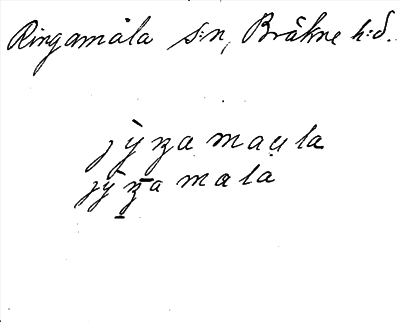 Ringamåla s:n, Bräkne h:d.
jỳŋa maula
jỳŋa mala